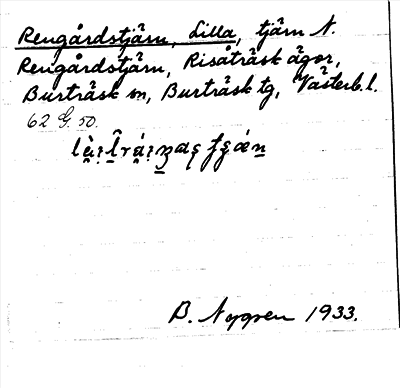 Rengårdstjärn, Lilla, tjärn N.
Rengårdstjärn, Risåträsk ägor,
Burträsk sn, Burträsk tg, Västerb. l.
62 G. 50.
B. Nygren 1933.